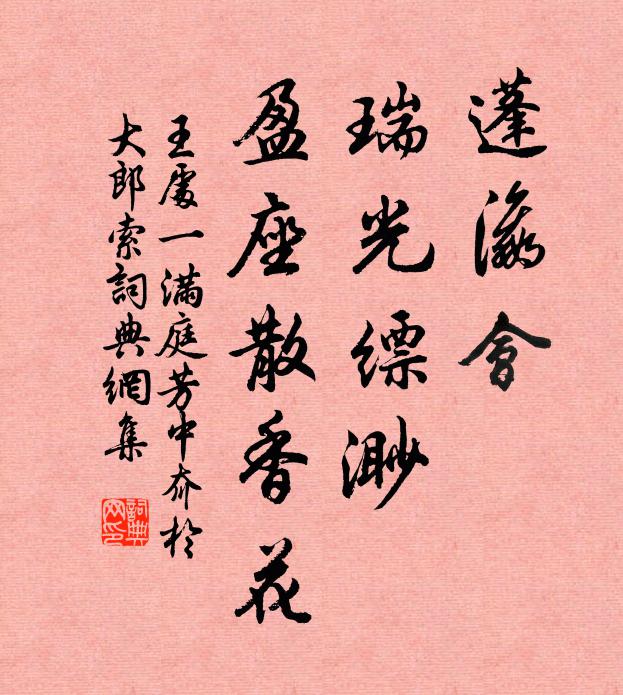 蓬瀛會
瑞光縹渺
盈座散香花
王處一滿庭芳中夯於
大郎索詞典網集
詞典
网印